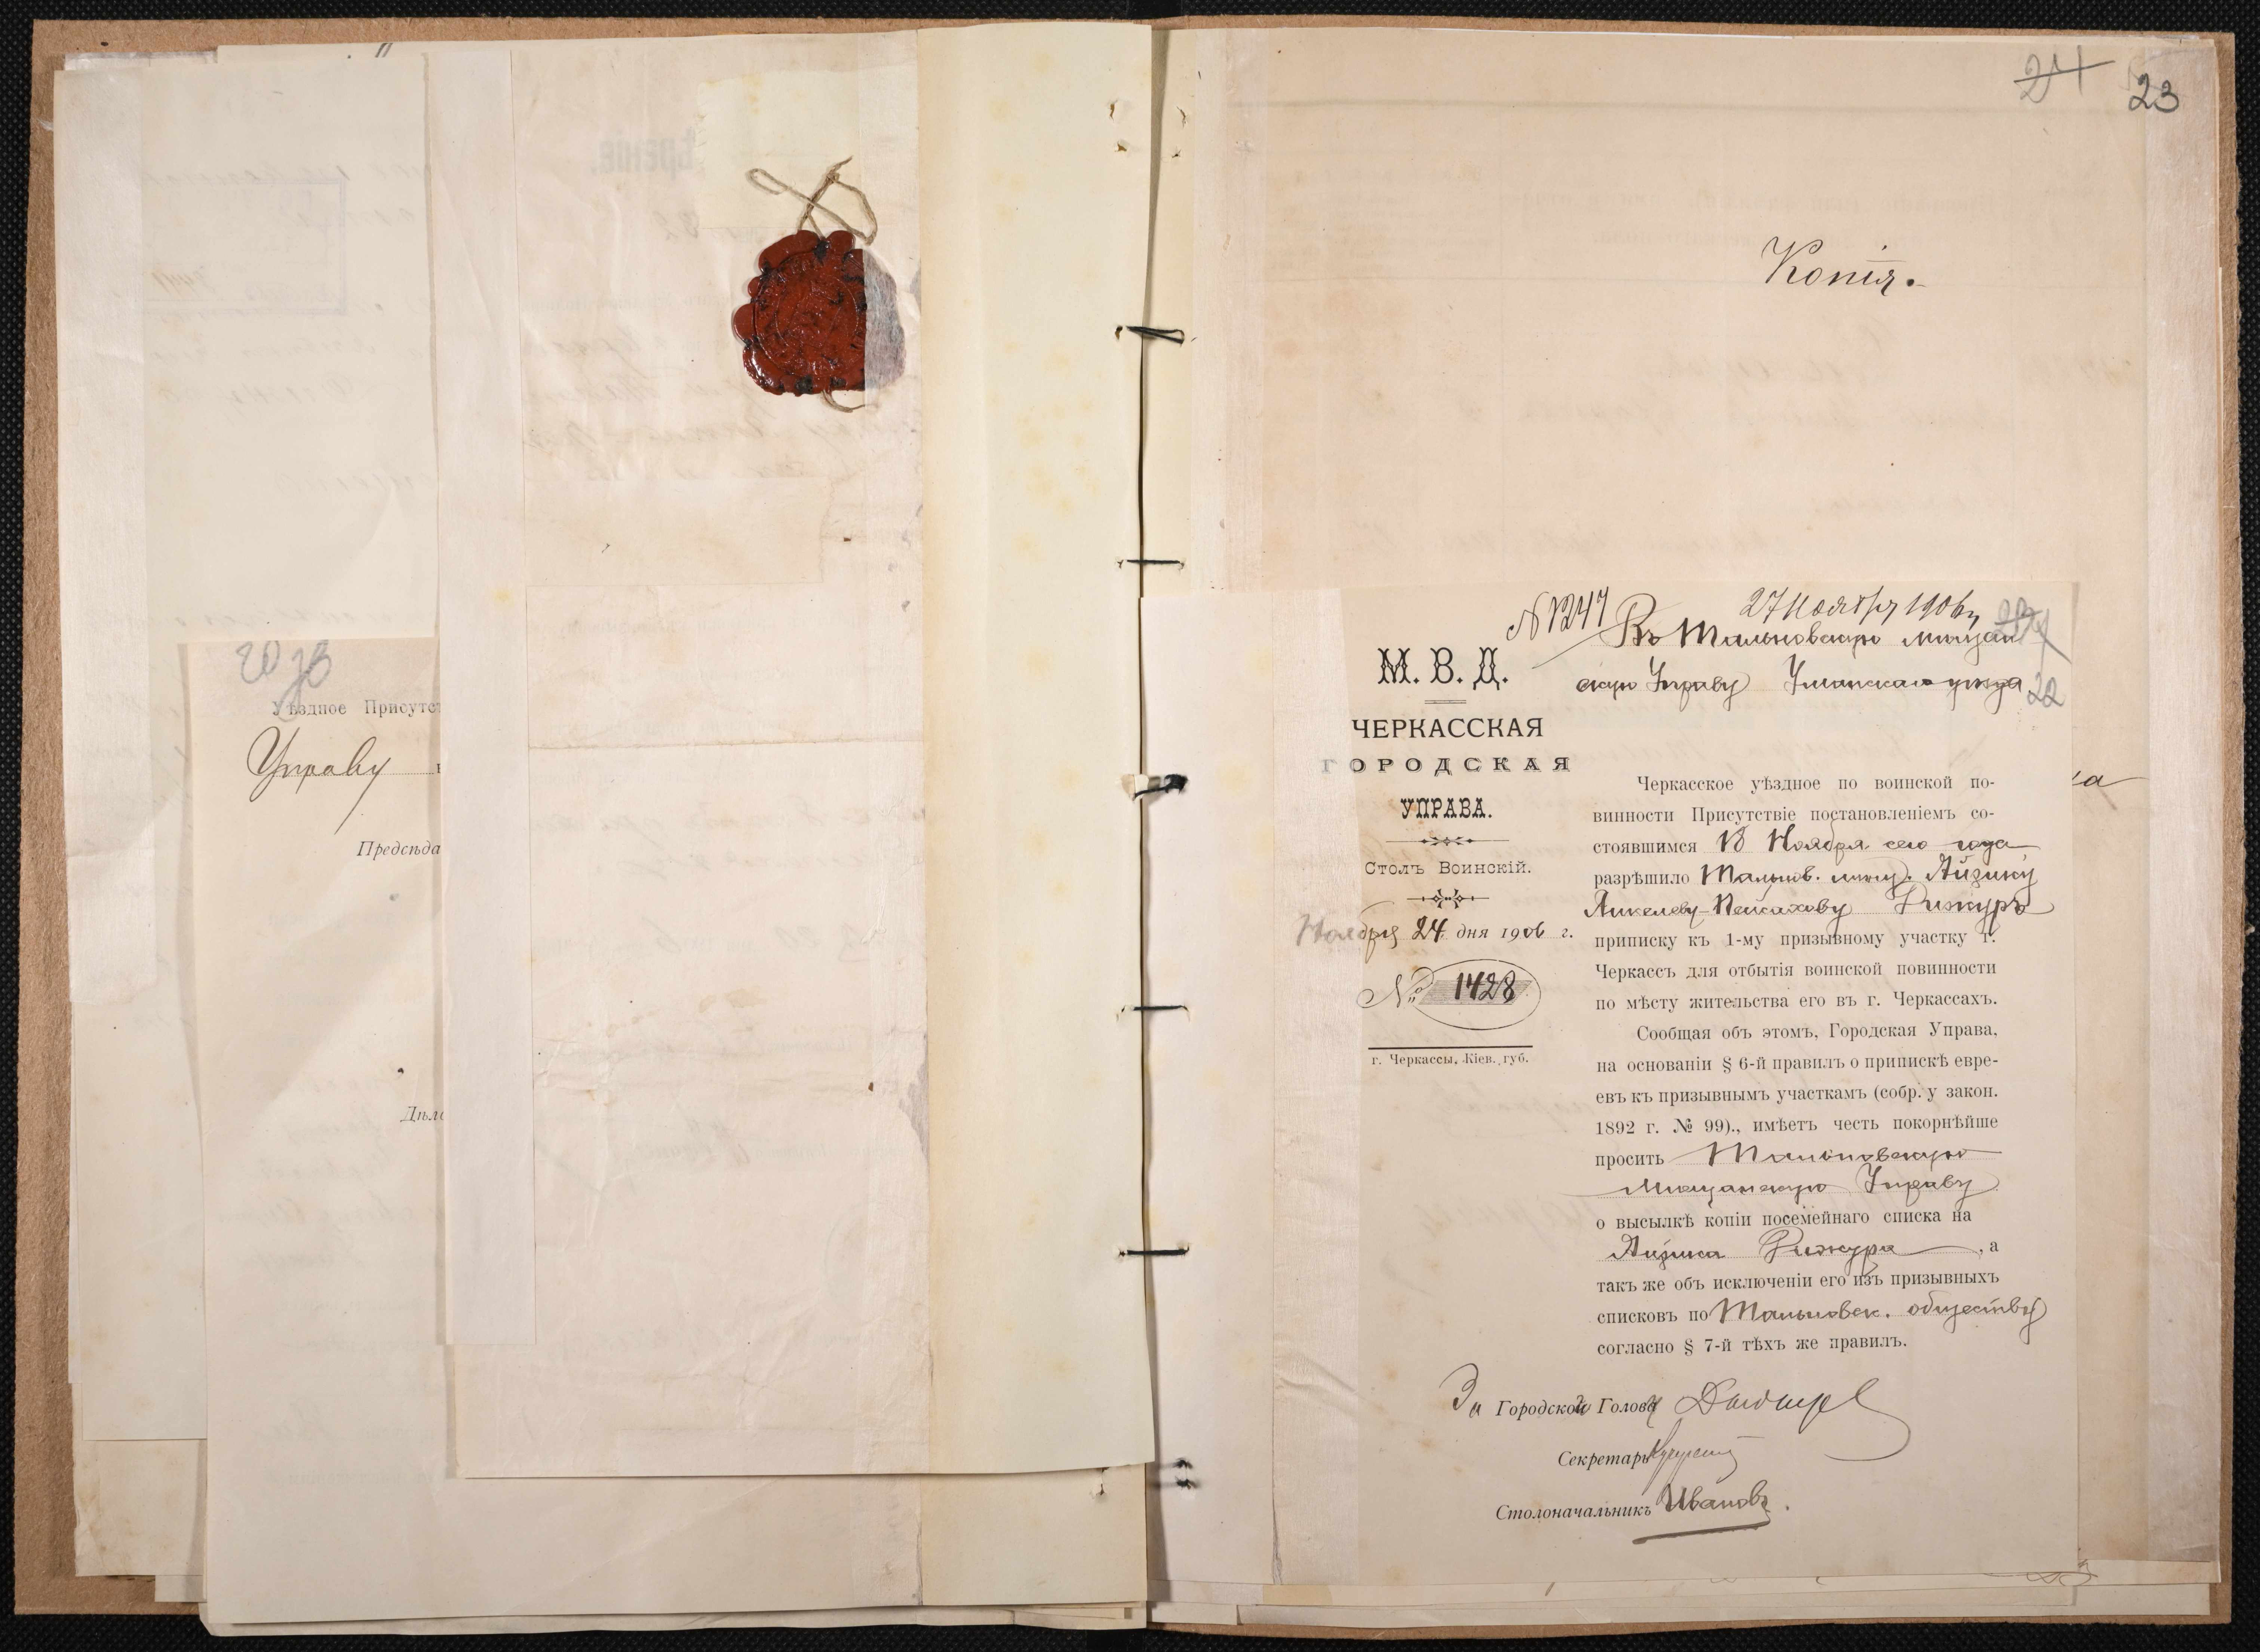 20
Уѣздное Присутс
Управу
Предсѣда
Дѣло
24
23
Копія.
22
№1247
27 Ноября 1906 г.
Въ Тальновскую мѣщан
скую Управу Уманскаго уѣзда
М. В. Д.
ЧЕРКАССКАЯ
ГОРОДСКАЯ
УПРАВА.
Столъ Воинскій.
Ноября 24 дня 1906 г.
№ 1428
г. Черкассы, Кіев. губ.
Черкасское уѣздное по воинской по-
винности Присутствіе постановленіемъ со-
стоявшимся 18 Ноября сего года
разрѣшило Тальнов. мѣщ. Айзику
Янкелеву-Пейсахову Рижуръ
приписку къ 1-му призывному участку г.
Черкассъ для отбытія воинской повинности
по мѣсту жительства его въ г. Черкассахъ.
Сообщая объ этомъ, Городская Управа,
на основаніи § 6-й правилъ о припискѣ евре-
евъ къ призывнымъ участкамъ (собр. у закон.
1892 г. № 99)., имѣетъ честь покорнѣйше
просить Тальновскую
Мѣщанскую Управу
о высылкѣ копіи посемейнаго списка на
Айзика Рижура, а
такъ же объ исключеніи его изъ призывныхъ
списковъ по Тальновск. обществу
согласно § 7-й тѣхъ же правилъ.
За Городской Голова
Секретарь
Столоначальникъ Ивановъ.